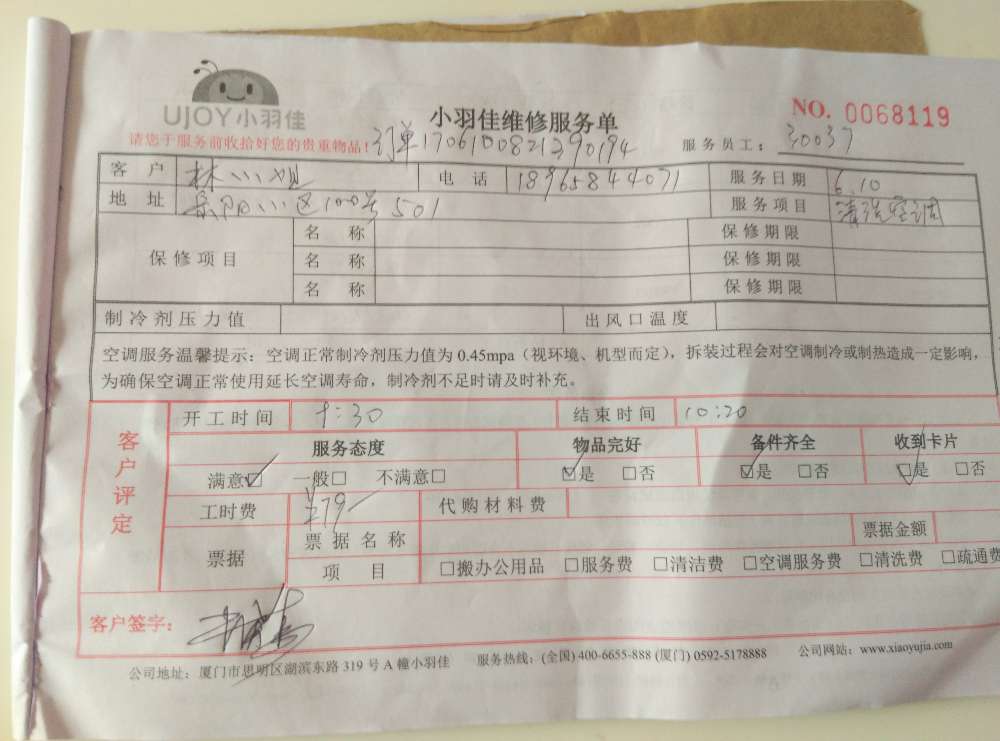 UJOY小羽佳
小羽佳维修服务单
NO. 0068119
请您于服务前收拾好您的贵重物品!
订单1706100821390194
服务员工: 30037
客 户 林小姐 电 话 18965844071 服务日期 6.10
地 址 景阳小区100号501 服务项目 清洗空调
保修项目 名 称 保修期限
名 称 保修期限
名 称 保修期限
制冷剂压力值 出风口温度
空调服务温馨提示:空调正常制冷剂压力值为0.45mpa(视环境、机型而定),拆装过程会对空调制冷或制热造成一定影响,
为确保空调正常使用延长空调寿命,制冷剂不足时请及时补充。
客户评定
开工时间 9:30 结束时间 10:20
服务态度 物品完好 备件齐全 收到卡片
满意☑ 一般□ 不满意□ ☑是 □否 ☑是 □否 ☑是 □否
工时费 ¥79- 代购材料费
票据 票据名称 票据金额
项 目 □搬办公用品 □服务费 □清洁费 □空调服务费 □清洗费 □疏通费
客户签字:
公司地址:厦门市思明区湖滨东路319号A幢小羽佳 服务热线:(全国)400-6655-888 (厦门) 0592-5178888 公司网站:www.xiaoyujia.com